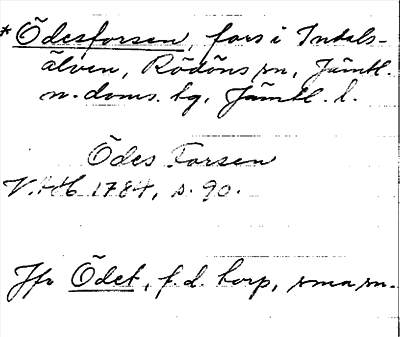 *Ödesforsen, fors i Indals-
älven, Rödöns sn, Jämtl.
n. doms. tg, Jämtl. l.
Ödes Forsen
1784, s. 90.
Jfr Ödet, f.d. torp, sma sn.